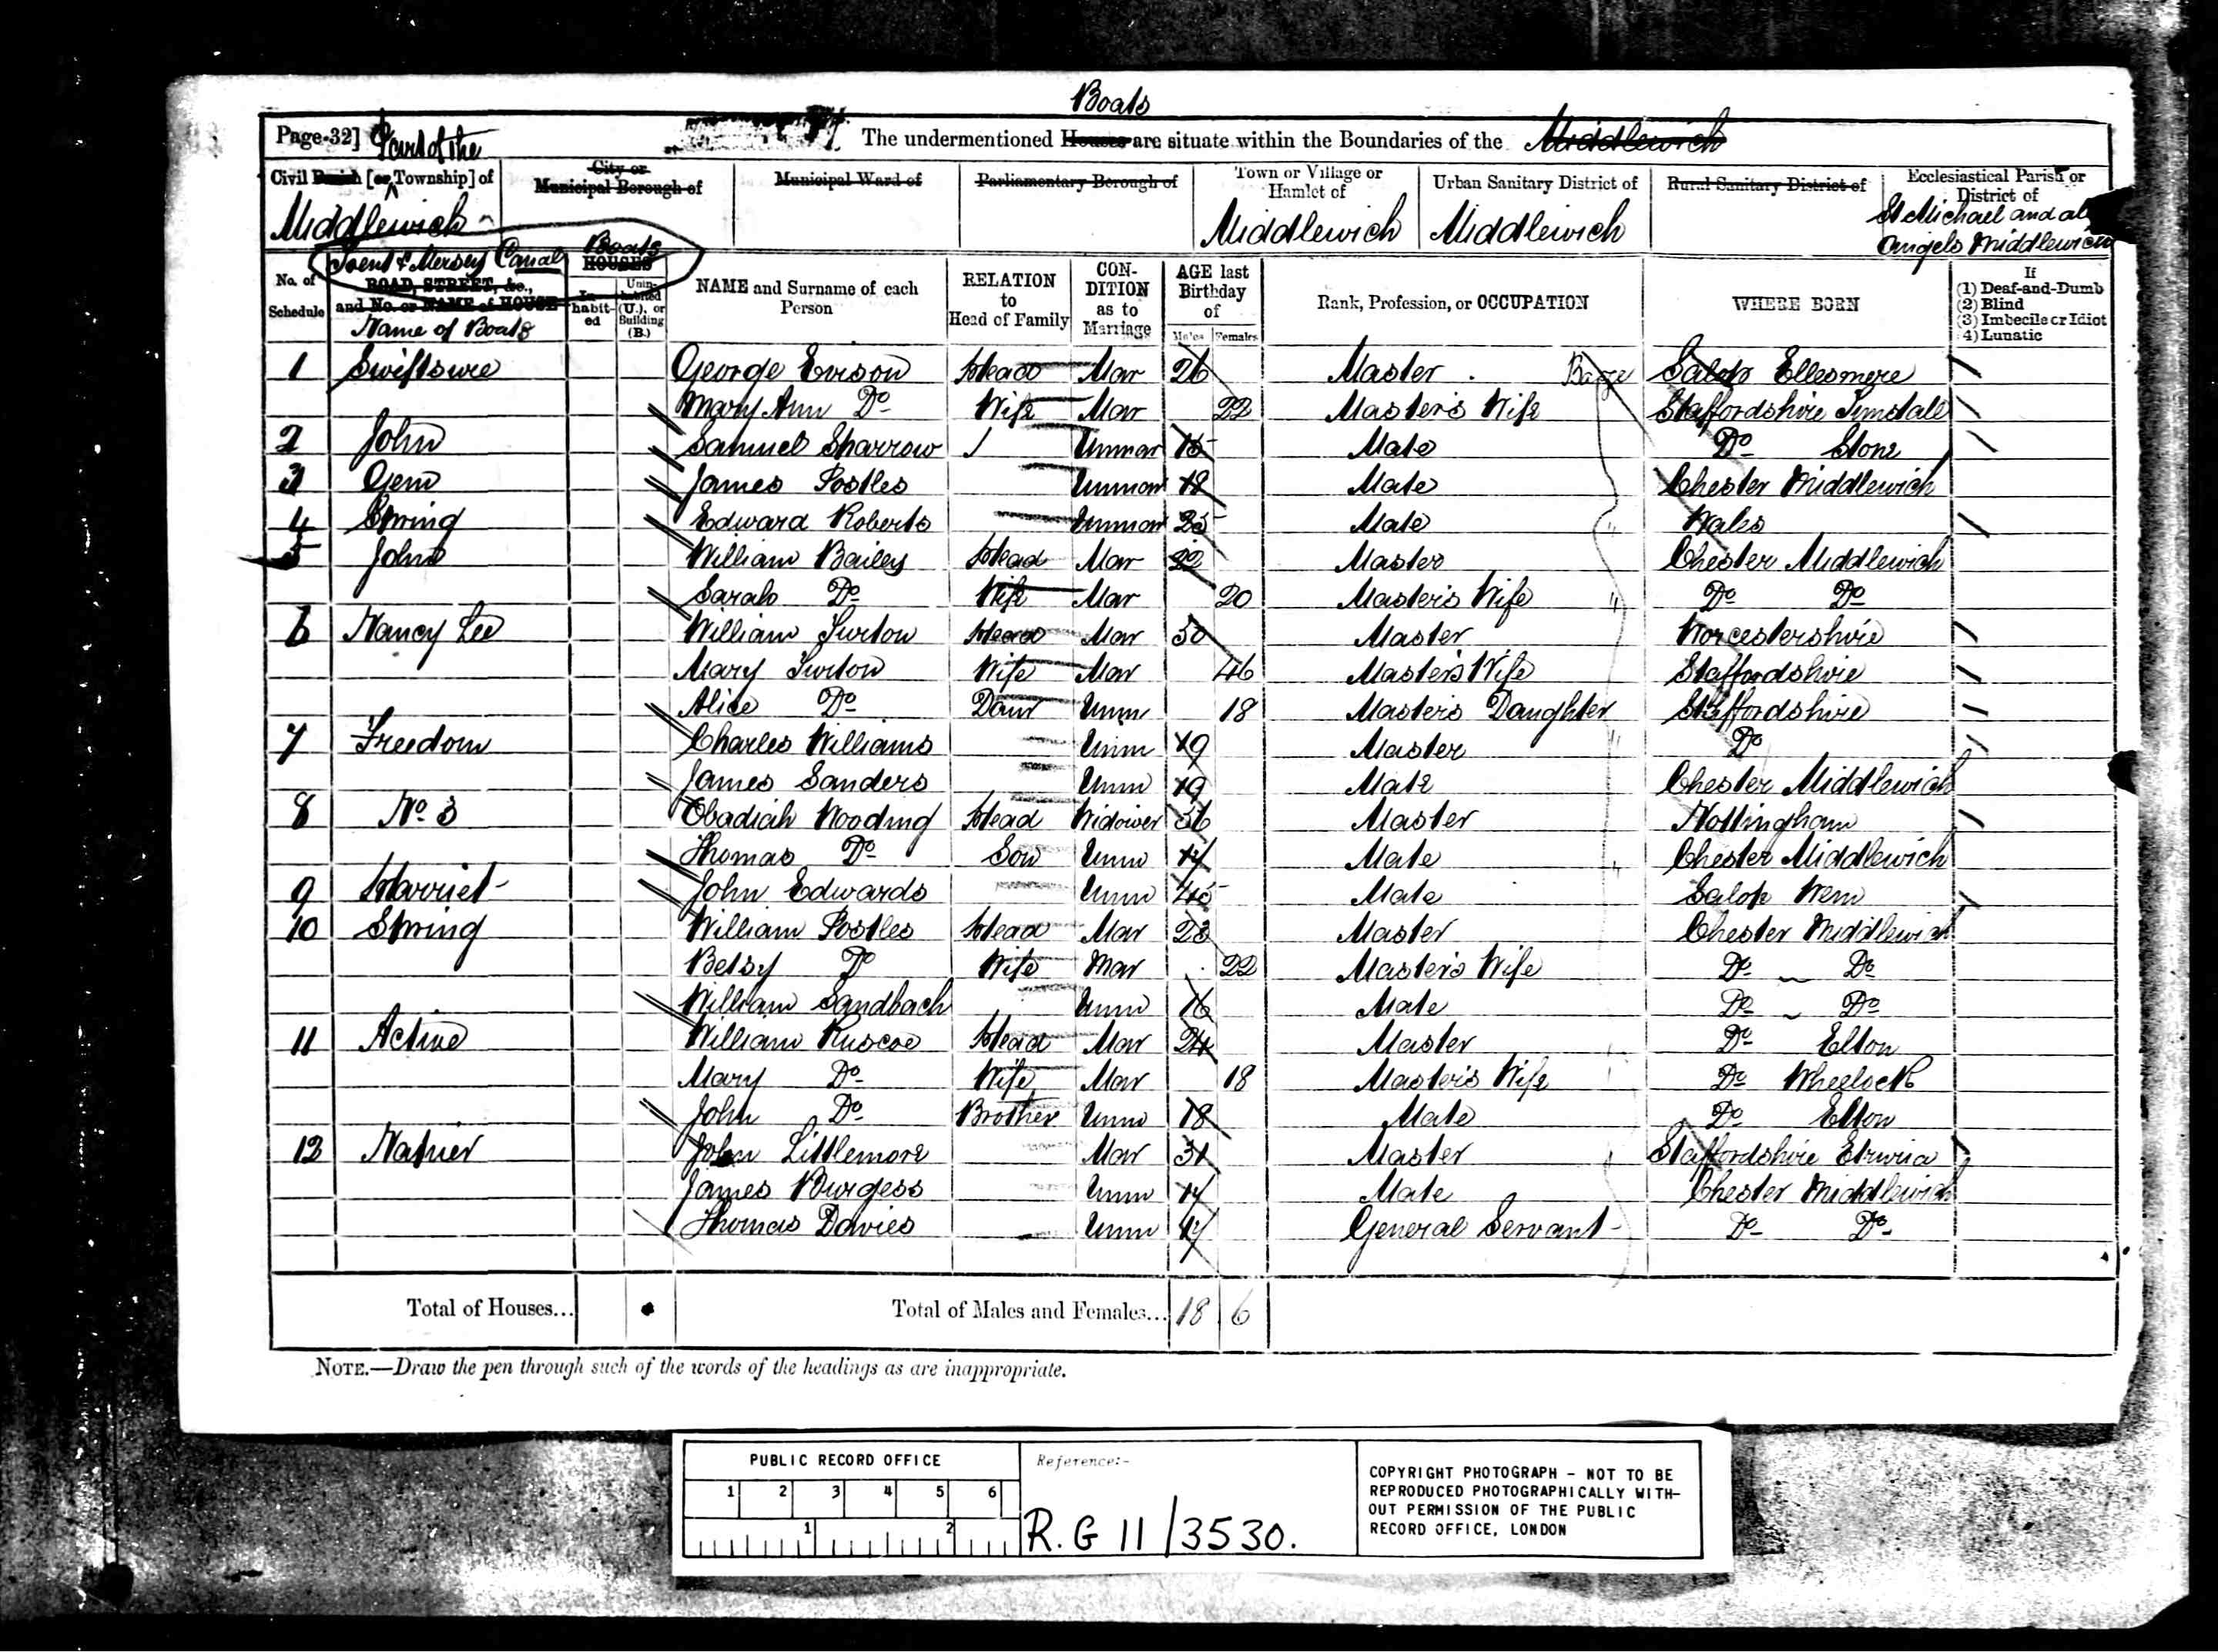 Boats
Page 32] Part of the The undermentioned Houses are situate within the Boundaries of the Middlewich
Civil Parish [or Township] of City or Municipal Borough of Municipal Ward of Parliamentary Borough of Town or Village or Hamlet of Urban Sanitary District of Rural Sanitary District of Ecclesiastical Parish or District of
Middlewich Middlewich Middlewich St Michael and all Angels Middlewich
Trent & Mersey Canal Boats
No. of Schedule ROAD, STREET, &c., and No. or NAME of HOUSE HOUSES Inhabited Uninhabited (U.), or Building (B.) NAME and Surname of each Person RELATION to Head of Family CONDITION as to Marriage AGE last Birthday of Males Females Rank, Profession, or OCCUPATION WHERE BORN If (1) Deaf-and-Dumb (2) Blind (3) Imbecile or Idiot (4) Lunatic
Name of Boats
1 Swiftsure George Evison Head Mar 26 Master Barge Salop Ellesmere
Mary Ann Do Wife Mar 22 Master's Wife Staffordshire
2 John Samuel Sharrow Unmar 15 Mate Do Stone
3 Gem James Postles Unmar 18 Mate Chester Middlewich
4 Spring Edward Roberts Unmar 25 Mate " Wales
5 John William Bailey Head Mar 22 Master Chester Middlewich
Sarah Do Wife Mar 20 Master's Wife " Do Do
6 Nancy Lee William Turton Head Mar 50 Master Worcestershire
Mary Turton Wife Mar 46 Master's Wife Staffordshire
Alice Do Daur Unm 18 Master's Daughter Staffordshire
7 Freedom Charles Williams Unm 19 Master " Do
James Sanders Unm 19 Mate Chester Middlewich
8 No 3 Obadiah Wooding Head Widower 56 Master Nottingham
Thomas Do Son Unm 17 Mate " Chester Middlewich
9 Harriet John Edwards Unm 45 Mate Salop Wem
10 Spring William Postles Head Mar 23 Master Chester Middlewich
Betsy Do Wife Mar 22 Master's Wife Do Do
William Sandbach Unm 16 Mate Do Do
11 Active William Ruscoe Head Mar 24 Master Do Elton
Mary Do Wife Mar 18 Master's Wife Do Wheelock
John Do Brother Unm 18 Mate Do Elton
12 Napier John Littlemore Mar 31 Master Staffordshire Etruria
James Burgess Unm 17 Mate Chester Middlewich
Thomas Davies Unm 17 General Servant Do Do
Total of Houses... Total of Males and Females... 18 6
NOTE.—Draw the pen through such of the words of the headings as are inappropriate.
PUBLIC RECORD OFFICE Reference:-
1 2 3 4 5 6
1 2
R.G 11/3530.
COPYRIGHT PHOTOGRAPH - NOT TO BE
REPRODUCED PHOTOGRAPHICALLY WITH-
OUT PERMISSION OF THE PUBLIC
RECORD OFFICE, LONDON